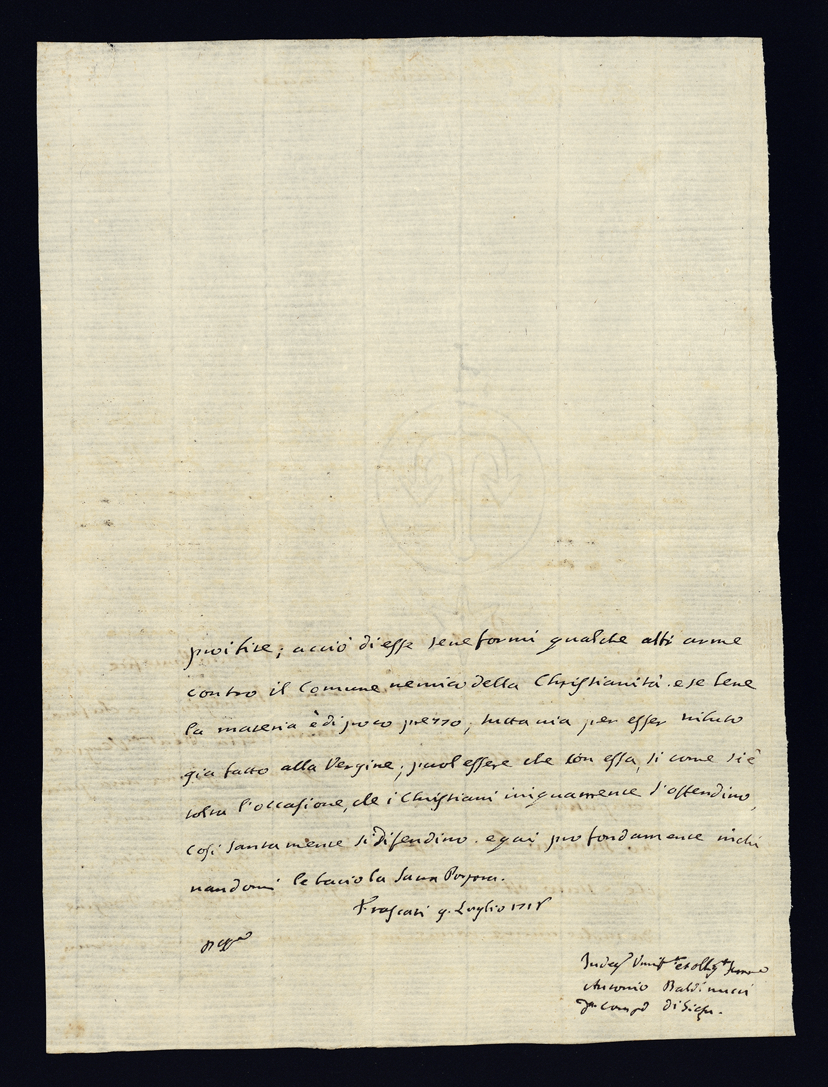 proibite; acciò di esse se ne formi qualche altr'arme
contro il Comune nemico della Christianità. e se bene
la materia è di poco prezzo, tutta via per esser tributo
gia fatto alla Vergine; puol essere che con essa, si come si è
tolta l'occasione, che i Christiani iniquamente s'offendino,
cosi santamente si difendino. e qui profondamente inchi
nandomi le bacio la Sacra Porpora.
Frascati 9. Luglio 1715
Antonio Baldinucci
di Giesu.